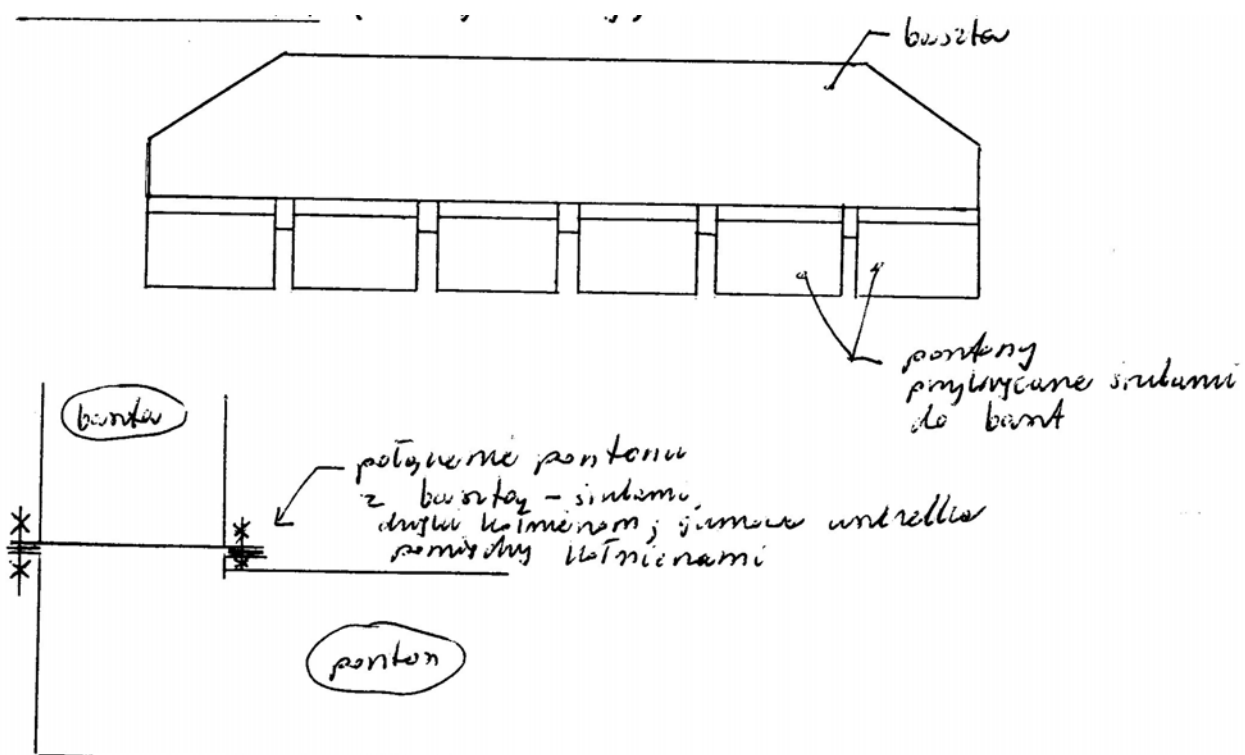 baszta
pontony
przykręcane śrubami
do baszt
baszta
połączenie pontonu
z basztą - śrubami
dzięki kołnierzom, gumowa uszczelka
pomiędzy kołnierzami
ponton